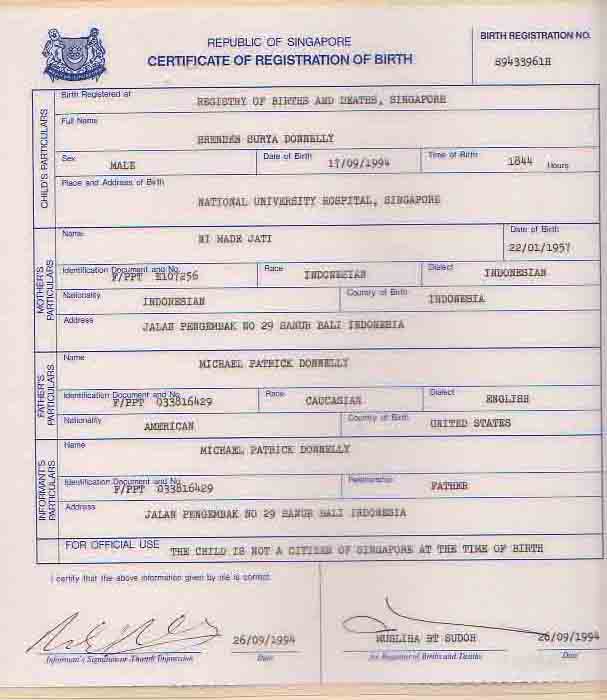 REPUBLIC OF SINGAPORE
CERTIFICATE OF REGISTRATION OF BIRTH
BIRTH REGISTRATION NO.
S9433961H
CHILD'S PARTICULARS
Birth Registered at
REGISTRY OF BIRTHS AND DEATHS, SINGAPORE
Full Name
BRENDEN SURYA DONNELLY
Sex
MALE
Date of Birth
17/09/1994
Time of Birth
1844 Hours
Place and Address of Birth
NATIONAL UNIVERSITY HOSPITAL, SINGAPORE
MOTHER'S PARTICULARS
Name
NI MADE JATI
Date of Birth
22/01/1957
Identification Document and No.
F/PPT E107256
Race
INDONESIAN
Dialect
INDONESIAN
Nationality
INDONESIAN
Country of Birth
INDONESIA
Address
JALAN PENGEMBAK NO 29 SANUR BALI INDONESIA
FATHER'S PARTICULARS
Name
MICHAEL PATRICK DONNELLY
Identification Document and No.
F/PPT 033816429
Race
CAUCASIAN
Dialect
ENGLISH
Nationality
AMERICAN
Country of Birth
UNITED STATES
INFORMANT'S PARTICULARS
Name
MICHAEL PATRICK DONNELLY
Identification Document and No.
F/PPT 033816429
Relationship
FATHER
Address
JALAN PENGEMBAK NO 29 SANUR BALI INDONESIA
FOR OFFICIAL USE
THE CHILD IS NOT A CITIZEN OF SINGAPORE AT THE TIME OF BIRTH
I certify that the above information given by me is correct.
26/09/1994
Informant's Signature/Thumb Impression
Date
MUSLIHA BT SUDOH
26/09/1994
for Registrar of Births and Deaths
Date